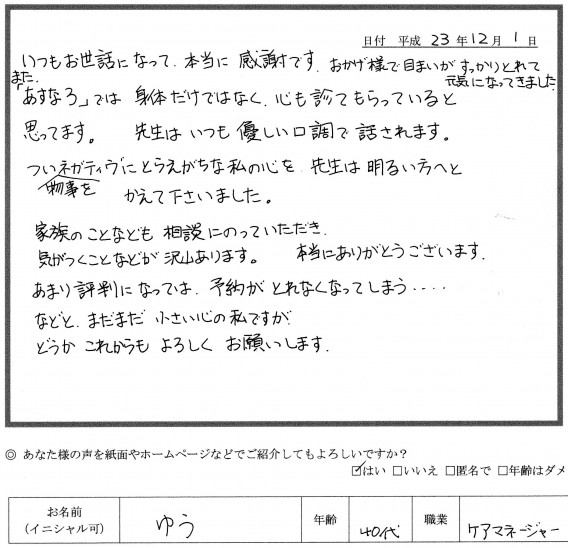 日付 平成 23年12月1日
いつもお世話になって、本当に感謝です。おかげ様で目まいがすっかりとれて
元気になってきました。
また、
「あすなろ」では身体だけではなく、心も診てもらっていると
思ってます。 先生はいつも優しい口調で話されます。
ついネガティヴにとらえがちな私の心を、先生は明るい方へと
物事を
かえて下さいました。
家族のことなども相談にのっていただき、
気がつくことなどが沢山あります。 本当にありがとうございます。
あまり評判になっては、予約がとれなくなってしまう‥‥
などと、まだまだ小さい心の私ですが
どうかこれからもよろしくお願いします。
◎ あなた様の声を紙面やホームページなどでご紹介してもよろしいですか?
☑はい □いいえ □匿名で □年齢はダメ
お名前 (イニシャル可) ゆう 年齢 40代 職業 ケアマネージャー